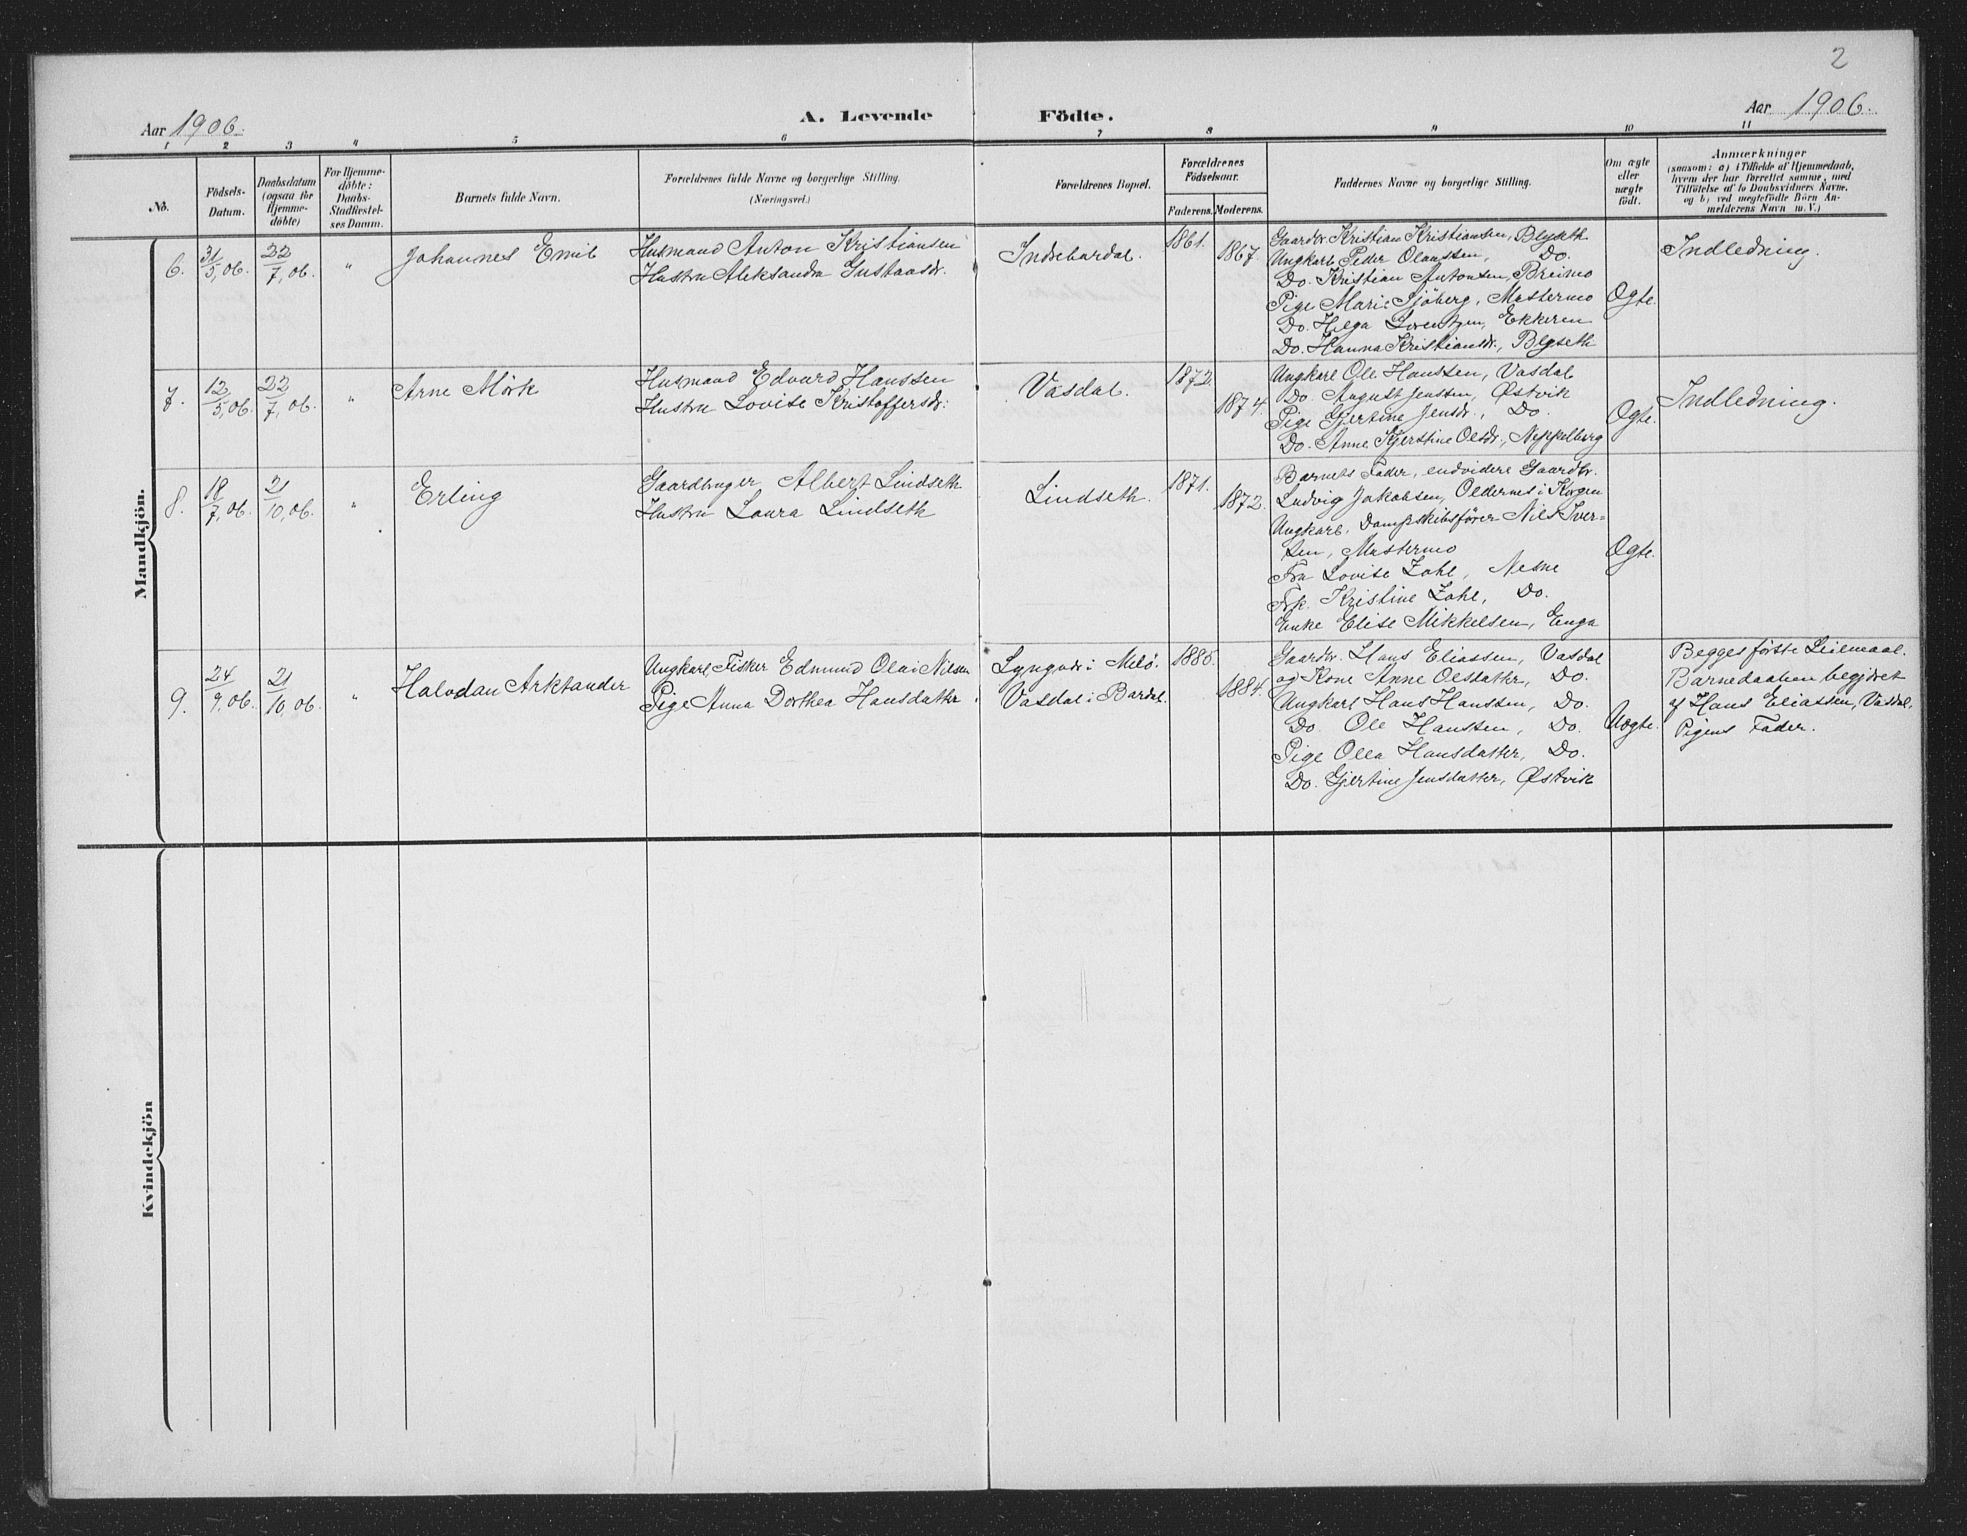 2
Aar 1906.
A. Levende Födte.
Aar 1906.
1 2 3 4 5 6 7 8 9 10 11
No.
Födsels-
Datum.
Daabsdatum
(ogsaa for
Hjemme-
døbte)
For Hjemme-
døbte:
Daabs-
Stadfæstel-
ses Datum.
Barnets fulde Navn.
Forældrenes fulde Navne og borgerlige Stilling.
(Næringsvei.)
Forældrenes Bopæl.
Forældrenes
Födselsaar.
Faderens. Moderens.
Faddernes Navne og borgerlige Stilling.
Om ægte
eller
uægte
født.
Anmærkninger
(saasom: a) i Tilfælde af Hjemmedaab,
hvem der har forrettet samme, med
Tilföielse af to Daabsvidners Navne,
og b) ved uægtefödte Börn An-
melderens Navn m. V.)
Mandkjön.
6.
31/5, 06.
22/7, 06.
"
Johannes Emil
Husmand Anton Kristiansen
Hustru Aleksandra Gustavsdr.
Indrebardal.
1861.
1867.
Gaardbr. Kristian Kristiansen, Blyseth
Ungkarl Peder Olaussen, Do.
Do. Kristian Antonsen, Breimo
Pige Marie Sjöberg, Mastermo
Do. Helga Lorentzen, Ekkeren
Do. Hanna Kristiansdr., Blyseth
Ægte.
Indledning.
7.
12/5, 06.
22/7, 06.
"
Arne Mörk
Husmand Edvard Hanssen
Hustru Lovise Kristoffersdr.
Vasdal.
1872.
1874.
Ungkarl Ole Hanssen, Vasdal
Do. August Jenssen, Østvik
Pige Gjertine Jensdr., Do.
Do. Anne Kjerstine Olsdr., Neppelberg
Ægte.
Indledning.
8.
18/7, 06.
21/10, 06.
"
Erling
Gaardbruger Albert Lindseth
Hustru Laura Lindseth
Lindseth.
1871.
1872.
Barnets Fader, endvidere Gaardbr.
Ludvig Jakobsen, Oldernes i Korgen
Ungkarl, Dampskibsfører Nils Iver-
sen, Mastermo
Fru Lovise Zahl, Nesne
Frk. Kristine Zahl, Do.
Enke Elise Mikkelsen, Enga
Ægte.
9.
24/9, 06.
21/10, 06.
"
Halvdan Arktander
Ungkarl, Fisker Edmund Olai Nilsen
Pige Anna Dorthea Hansdatter
Lyngvær i Melö.
Vasdal i Bardal.
1885.
1884.
Gaardbr. Hans Eliassen, Vasdal
og Kone Anne Olsdatter, Do.
Ungkarl Hans Hanssen, Do.
Do. Ole Hanssen, Do.
Pige Olea Hansdatter, Do.
Do. Gjertine Jensdatter, Østvik
Uægte.
Begges förste Leiermaal.
Barnedaaben begjæret
af Hans Eliassen, Vasdal.
Pigens Fader.
Kvindekjön